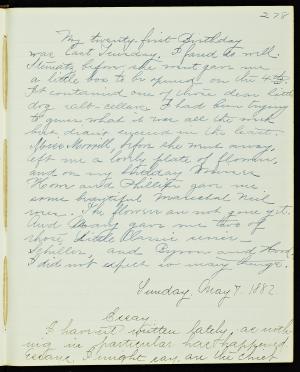 278
My twenty first Birthday
was last Tuesday. I fared so well.
before she went gave me
a little box to be opened on the 4th.
It contained one of those dear little
dog salt-cellars. I had been trying
to guess what it was all the week
but didn't succeed in the least.
Miss Merrill, before she went away,
left me a lovely plate of flowers,
and on my birthday
and gave me
some beautiful Marechal Neil
roses. The flowers are not gone yet.
And gave me two of
those little Classic series—
Schiller, and Byron and Hood.
I did not expect so many things.
Sunday, May 7, 1882
Essay
I haven't written lately, as noth-
ing in particular has happened.
I might say, are the chief